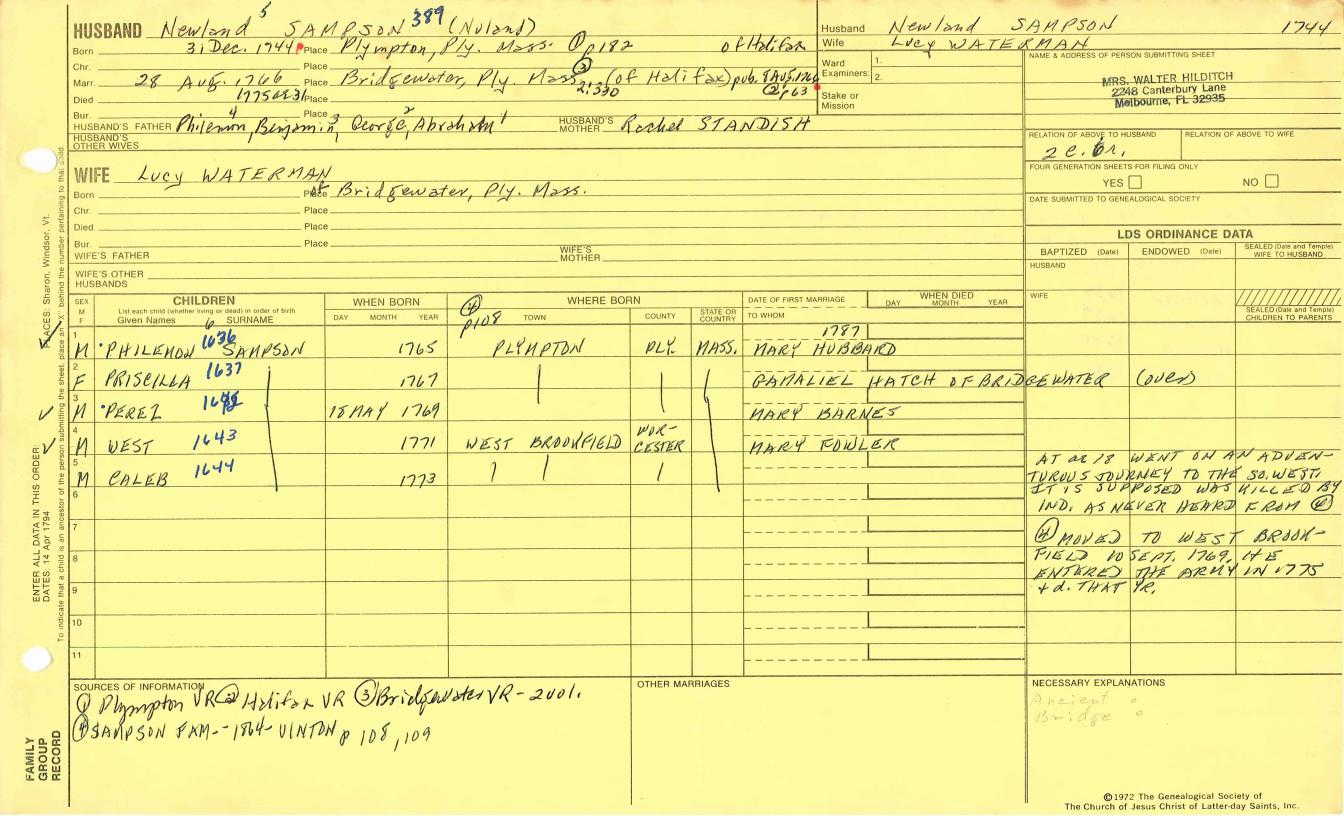 HUSBAND Newland 5 SAMPSON 389 (Nuland)
Born 31 Dec. 1744 Place Plympton, Ply. Mass. ① p182 of Halifax
Chr. Place
Marr. 28 Aug. 1766 Place Bridgewater, Ply. Mass. ③ 2:330 (of Halifax) pub. 8 Aug. 1766 ② p63
Died 1775 Place
Bur. Place
HUSBAND'S FATHER Philemon 4, Benjamin 3, George 2, Abraham 1 HUSBAND'S MOTHER Rachel STANDISH
HUSBAND'S OTHER WIVES
WIFE Lucy WATERMAN
Born Place of Bridgewater, Ply. Mass.
Chr. Place
Died Place
Bur. Place
WIFE'S FATHER WIFE'S MOTHER
WIFE'S OTHER HUSBANDS
Husband Newland SAMPSON 1744
Wife Lucy WATERMAN
Ward Examiners: 1.
2.
Stake or Mission
NAME & ADDRESS OF PERSON SUBMITTING SHEET
MRS. WALTER HILDITCH
2248 Canterbury Lane
Melbourne, FL 32935
RELATION OF ABOVE TO HUSBAND RELATION OF ABOVE TO WIFE
2 c. 6r.
FOUR GENERATION SHEETS FOR FILING ONLY
YES NO
DATE SUBMITTED TO GENEALOGICAL SOCIETY
LDS ORDINANCE DATA
BAPTIZED (Date) ENDOWED (Date) SEALED (Date and Temple) WIFE TO HUSBAND
HUSBAND
WIFE
SEALED (Date and Temple) CHILDREN TO PARENTS
SEX M F CHILDREN WHEN BORN WHERE BORN DATE OF FIRST MARRIAGE WHEN DIED
List each child (whether living or dead) in order of birth
Given Names 6 SURNAME DAY MONTH YEAR ④ p108 TOWN COUNTY STATE OR COUNTRY TO WHOM DAY MONTH YEAR
1 M PHILEMON 1636 SAMPSON 1765 PLYMPTON PLY. MASS. 1787 MARY HUBBARD
2 F PRISCILLA 1637 1767 GAMALIEL HATCH OF BRIDGEWATER (over)
3 M PEREZ 18 MAY 1769 MARY BARNES
4 M WEST 1643 1771 WEST BROOKFIELD WORCESTER MARY FOWLER
5 M CALEB 1644 1773
6
7
8
9
10
11
AT AE 18 WENT ON AN ADVEN-
TUROUS JOURNEY TO THE SO. WEST.
IT IS SUPPOSED WAS KILLED BY
IND. AS NEVER HEARD FROM ④
④ MOVED TO WEST BROOK-
FIELD 10 SEPT. 1769. HE
ENTERED THE ARMY IN 1775
+ d. THAT YR.
SOURCES OF INFORMATION
① Plympton VR ② Halifax VR ③ Bridgewater VR - 2vol.
④ SAMPSON FAM - 1864 - VINTON p 108, 109
OTHER MARRIAGES
NECESSARY EXPLANATIONS
Ancient
Bridge
©1972 The Genealogical Society of
The Church of Jesus Christ of Latter-day Saints, Inc.
ENTER ALL DATA IN THIS ORDER:
DATES: 14 Apr 1794
PLACES: Sharon, Windsor, Vt.
To indicate that a child is an ancestor of the person submitting the sheet, place an "X" behind the number pertaining to that child.
FAMILY
GROUP
RECORD